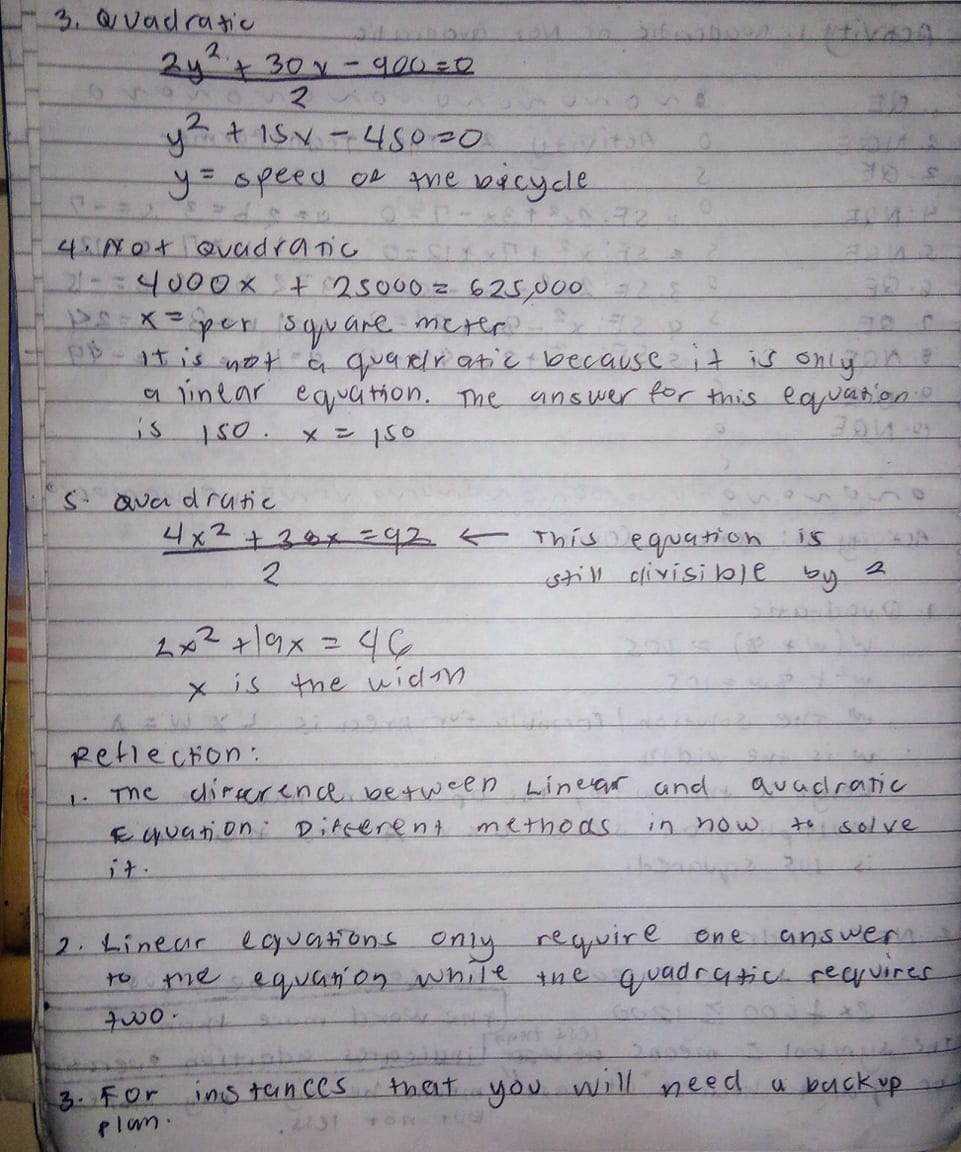 3. Quadratic
2y² + 30y - 900 = 0
2
y² + 15y - 450 = 0
y = speed of the bicycle
4. Not Quadratic
4000x + 25000 = 625,000
x = per square meter
it is not a quadratic because it is only
a linear equation. The answer for this equation
is 150. x = 150
5. Quadratic
4x² + 38x = 92 ← This equation is
2 still divisible by 2
2x² + 19x = 46
x is the width
Reflection:
1. The difference between Linear and quadratic
Equation: Different methods in how to solve
it.
2. Linear equations only require one answer
to the equation while the quadratic requires
two.
3. For instances that you will need a backup
plan.